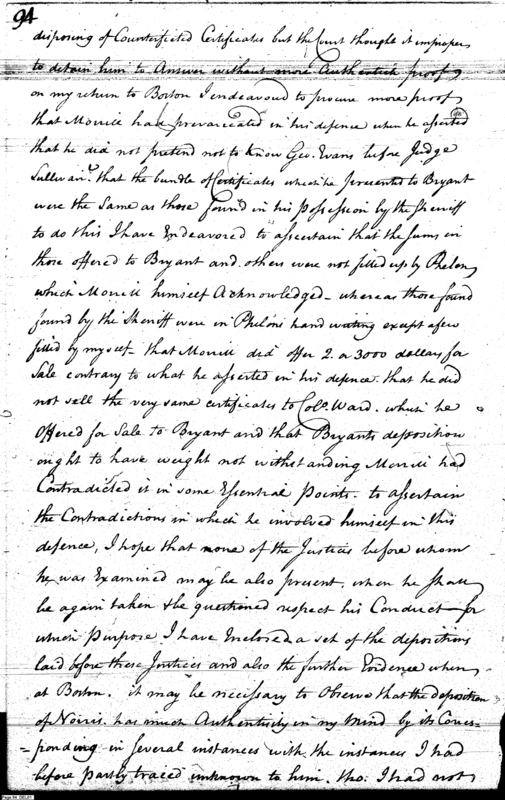 94
disposing of Counterfieted Certificates but the Court thought it improper
to detain him to Answer without more Authentick proof
on my return to Boston I endeavour'd to procure more proof
that Morrill had prevaricated in his defence when he asserted
that he did not pretend not to know Geo. Evans before Judge
Sullivan. that the bundle of Certificates which he presented to Bryant
were the Same as those found in his Possession by the Sheriff
to do this I have Endeavored to ascertain that the sums in
those offered to Bryant and others were not filled up by Phelon
which Morrill himself Acknowledged - whereas those found
found by the Sheriff were in Phelons hand writing except a few
filled by myself - that Morrill did offer 2 a 3000 dollars for
Sale contrary to what he asserted in his defence. that he did
not sell the very same certificates to Colo. Ward. which he
Offered for Sale to Bryant and that Bryants deposition
ought to have weight not withstanding Morrill had
Contradicted it in some Essential Points. to ascertain
the Contradictions in which he involved himself in this
defence, I hope that some of the Justices before whom
he was Examined may be also present. when he shall
be again taken & be questioned respect his Conduct - for
which Purpose I have Enclosed a set of the depositions
laid before these Justices and also the further Evidence when
at Boston. it may be necessary to Observe that the deposition
of Norris. has much Authenticity in my mind by its Corres-
=ponding in several instances with the instances I had
before partly traced unknown to him. tho. I had not
Page 94